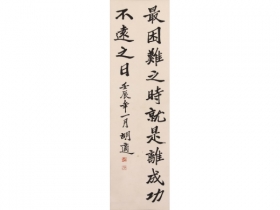 最困難之時就是離成功
不遠之日 壬辰年一月 胡適